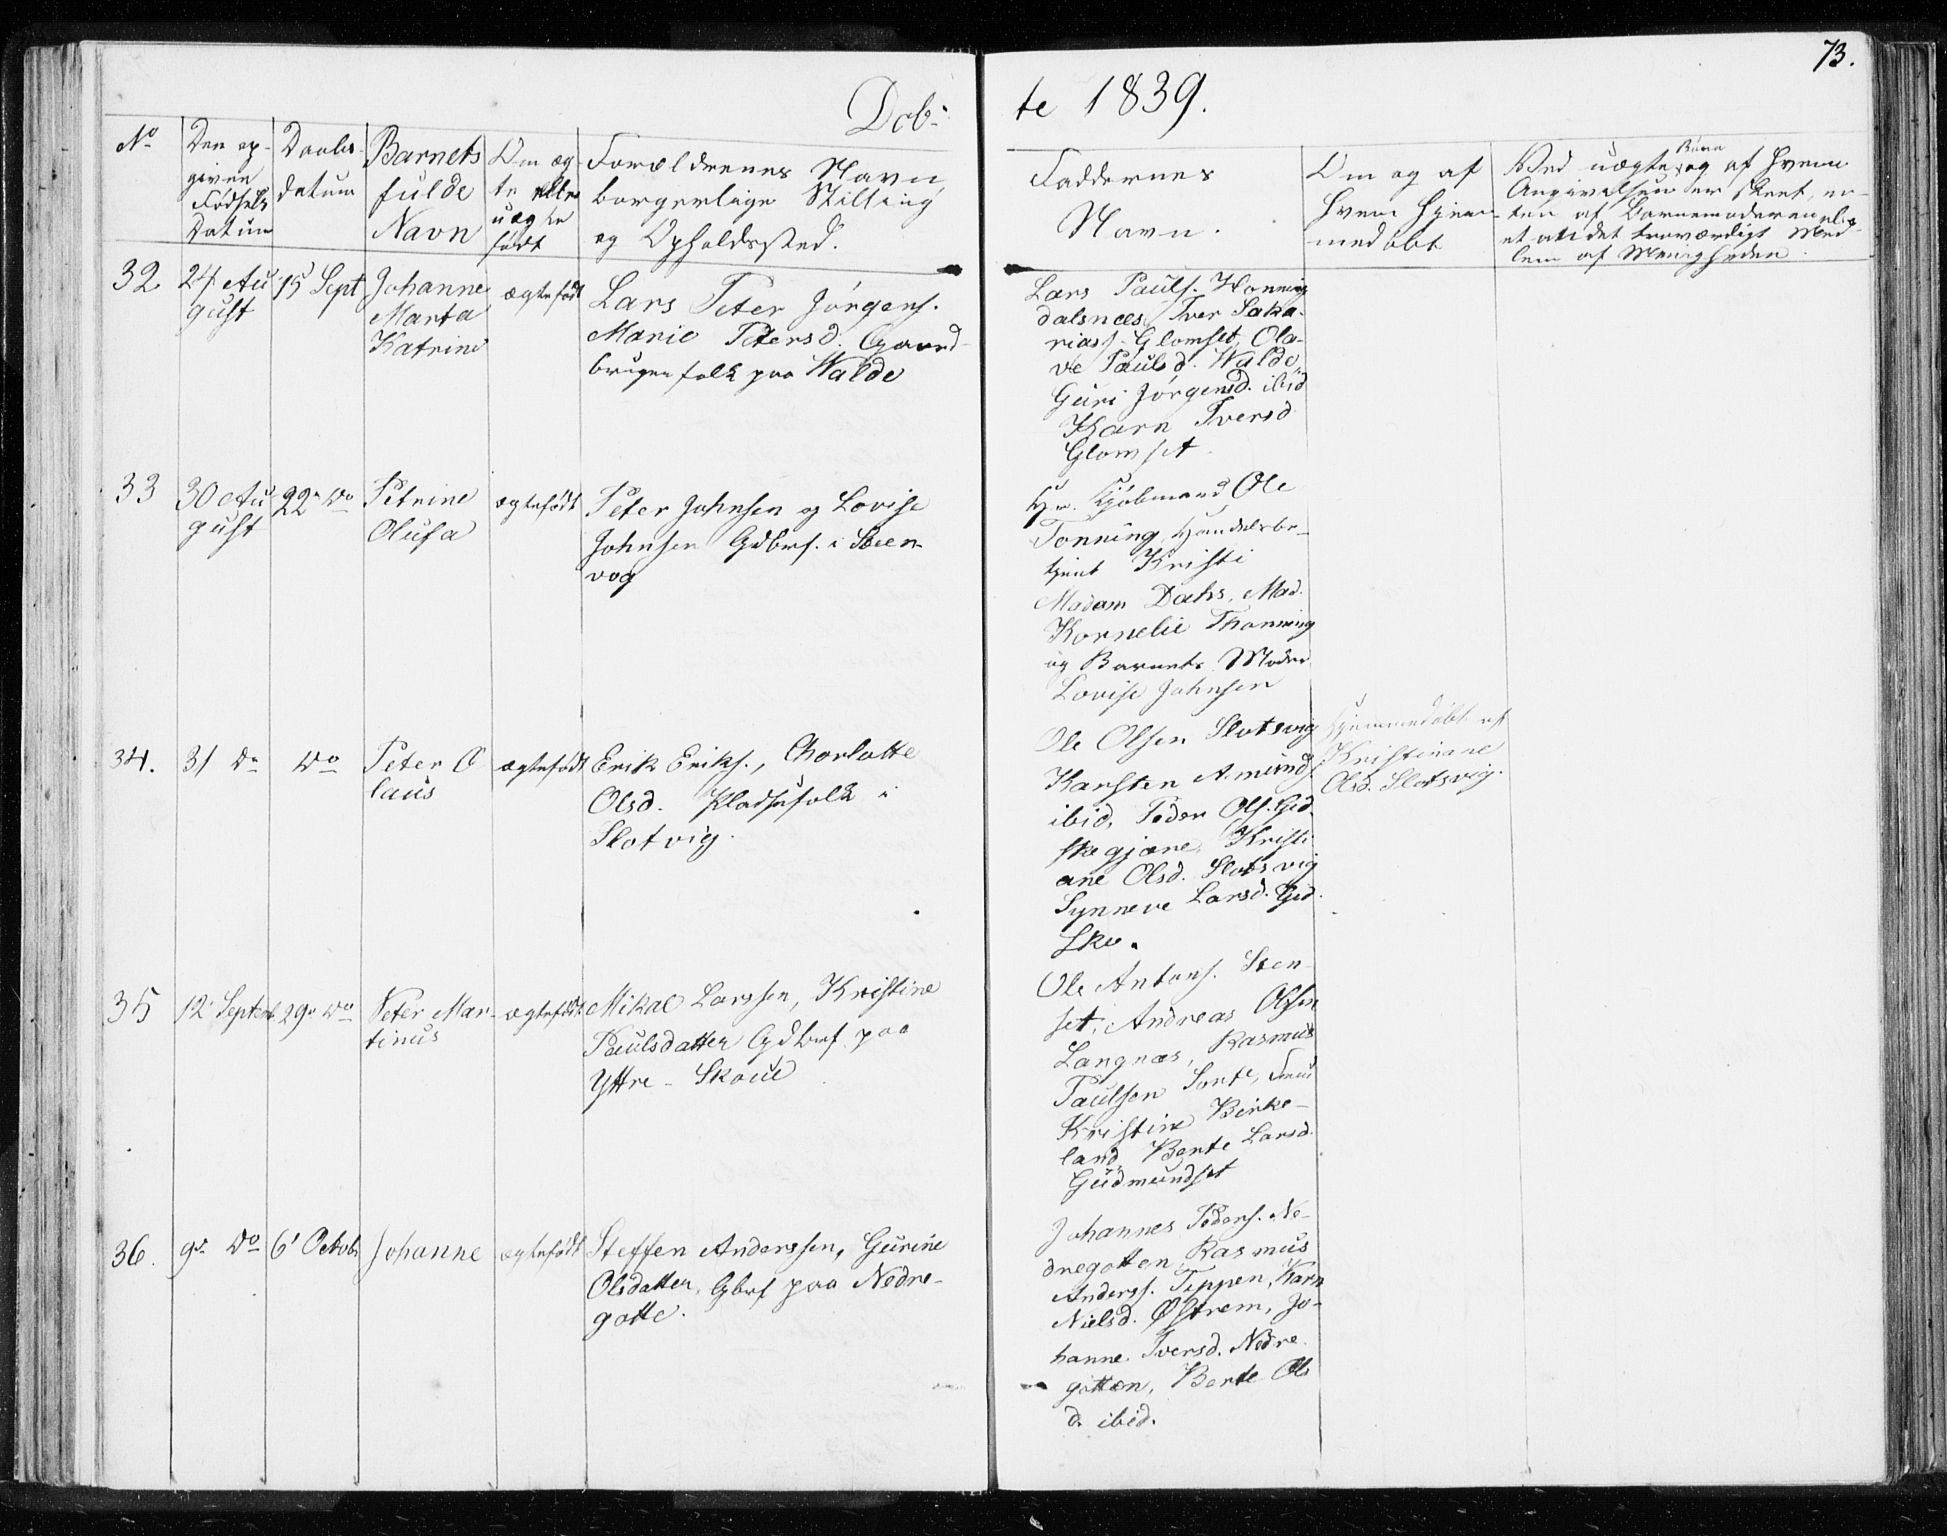 73.
Døb-
te 1839.
No
Den op-
given
Fødsels
Datum
Daabs-
datum
Barnets
fulde
Navn
Om æg-
te eller
uægte
født
Forældrenes Navn,
borgerlige Stilling
og Opholdssted.
Faddernes
Navn.
Om og af
hvem hjem-
medøbt
Børn
Ved uægte og af hvem
Angivelsen er skeet, en-
ten af Barnemoderen el.
et andet troværdigt Med-
lem af Menigheden.
32
24 Au
gust
15 Sept
Johanne
Marta
Katrine
ægtefødt
Lars Peter Jørgens.
Marie Petersd. Gaard-
brugerfolk paa Walde
Lars Pauls. Honning
dalsnæs, Iver Saka-
rias. Glomset, Ola-
ve Paulsd. Walde,
Guri Jørgensd. ibid
Karn Iversd
Glomset
33
30 Au
gust
22 Do
Petrine
Olufa
ægtefødt
Peter Johnsen og Lovise
Johnsen Gdbrf. i Steen-
vog
Hr. Kjøbmand Ole
Tonning, Handelsbe-
tjent Kristi
Madam Dahs, Mad.
Kornelie Thonning
og Barnets Moder
Lovise Johnsen
34.
31 Do
Do
Peter O
laus
ægtefødt
Erik Eriks., Charlotte
Olsd. Pladsefolk i
Slotvig.
Ole Olsen Slotsvig
Karsten Amunds
ibid, Peder Ols. Gid-
skegjære, Kristi
ane Olsd. Slotsvig
Synneve Larsd. Gid-
ske.
Hjemmedøbt af
Kristiane
Olsd. Slotsvig.
35
12 Septemb
29 Do
Peter Mar-
tinus
ægtefødt
Mikal Larssen, Kristine
Paulsdatter Gdbrf. paa
Yttre-Skoue
Ole Antons. Sten-
set, Andreas Olsen
Langnæs, Rasmus
Paulsen Sorte,
Kristine Birke-
land, Bente Larsd.
Gudmundset
36.
9de Do
6 Octob
Johanne
ægtefødt
Steffen Anderssen, Gurine
Olsdatter, Gbrf paa Nedre-
gotte.
Johannes Peders. Ne-
dregotten, Rasmus
Anderss. Teppen, Karn
Nielsd. Østrem, Jo-
hanne Iversd. Nedre
gotten, Berte Ols
d. ibid.